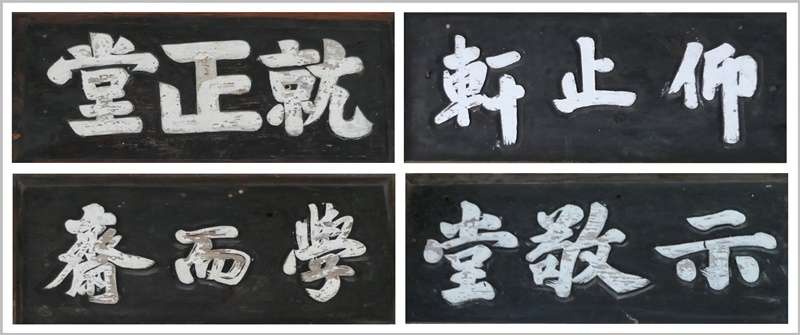 就正堂
仰止軒
學而齋
示敬堂